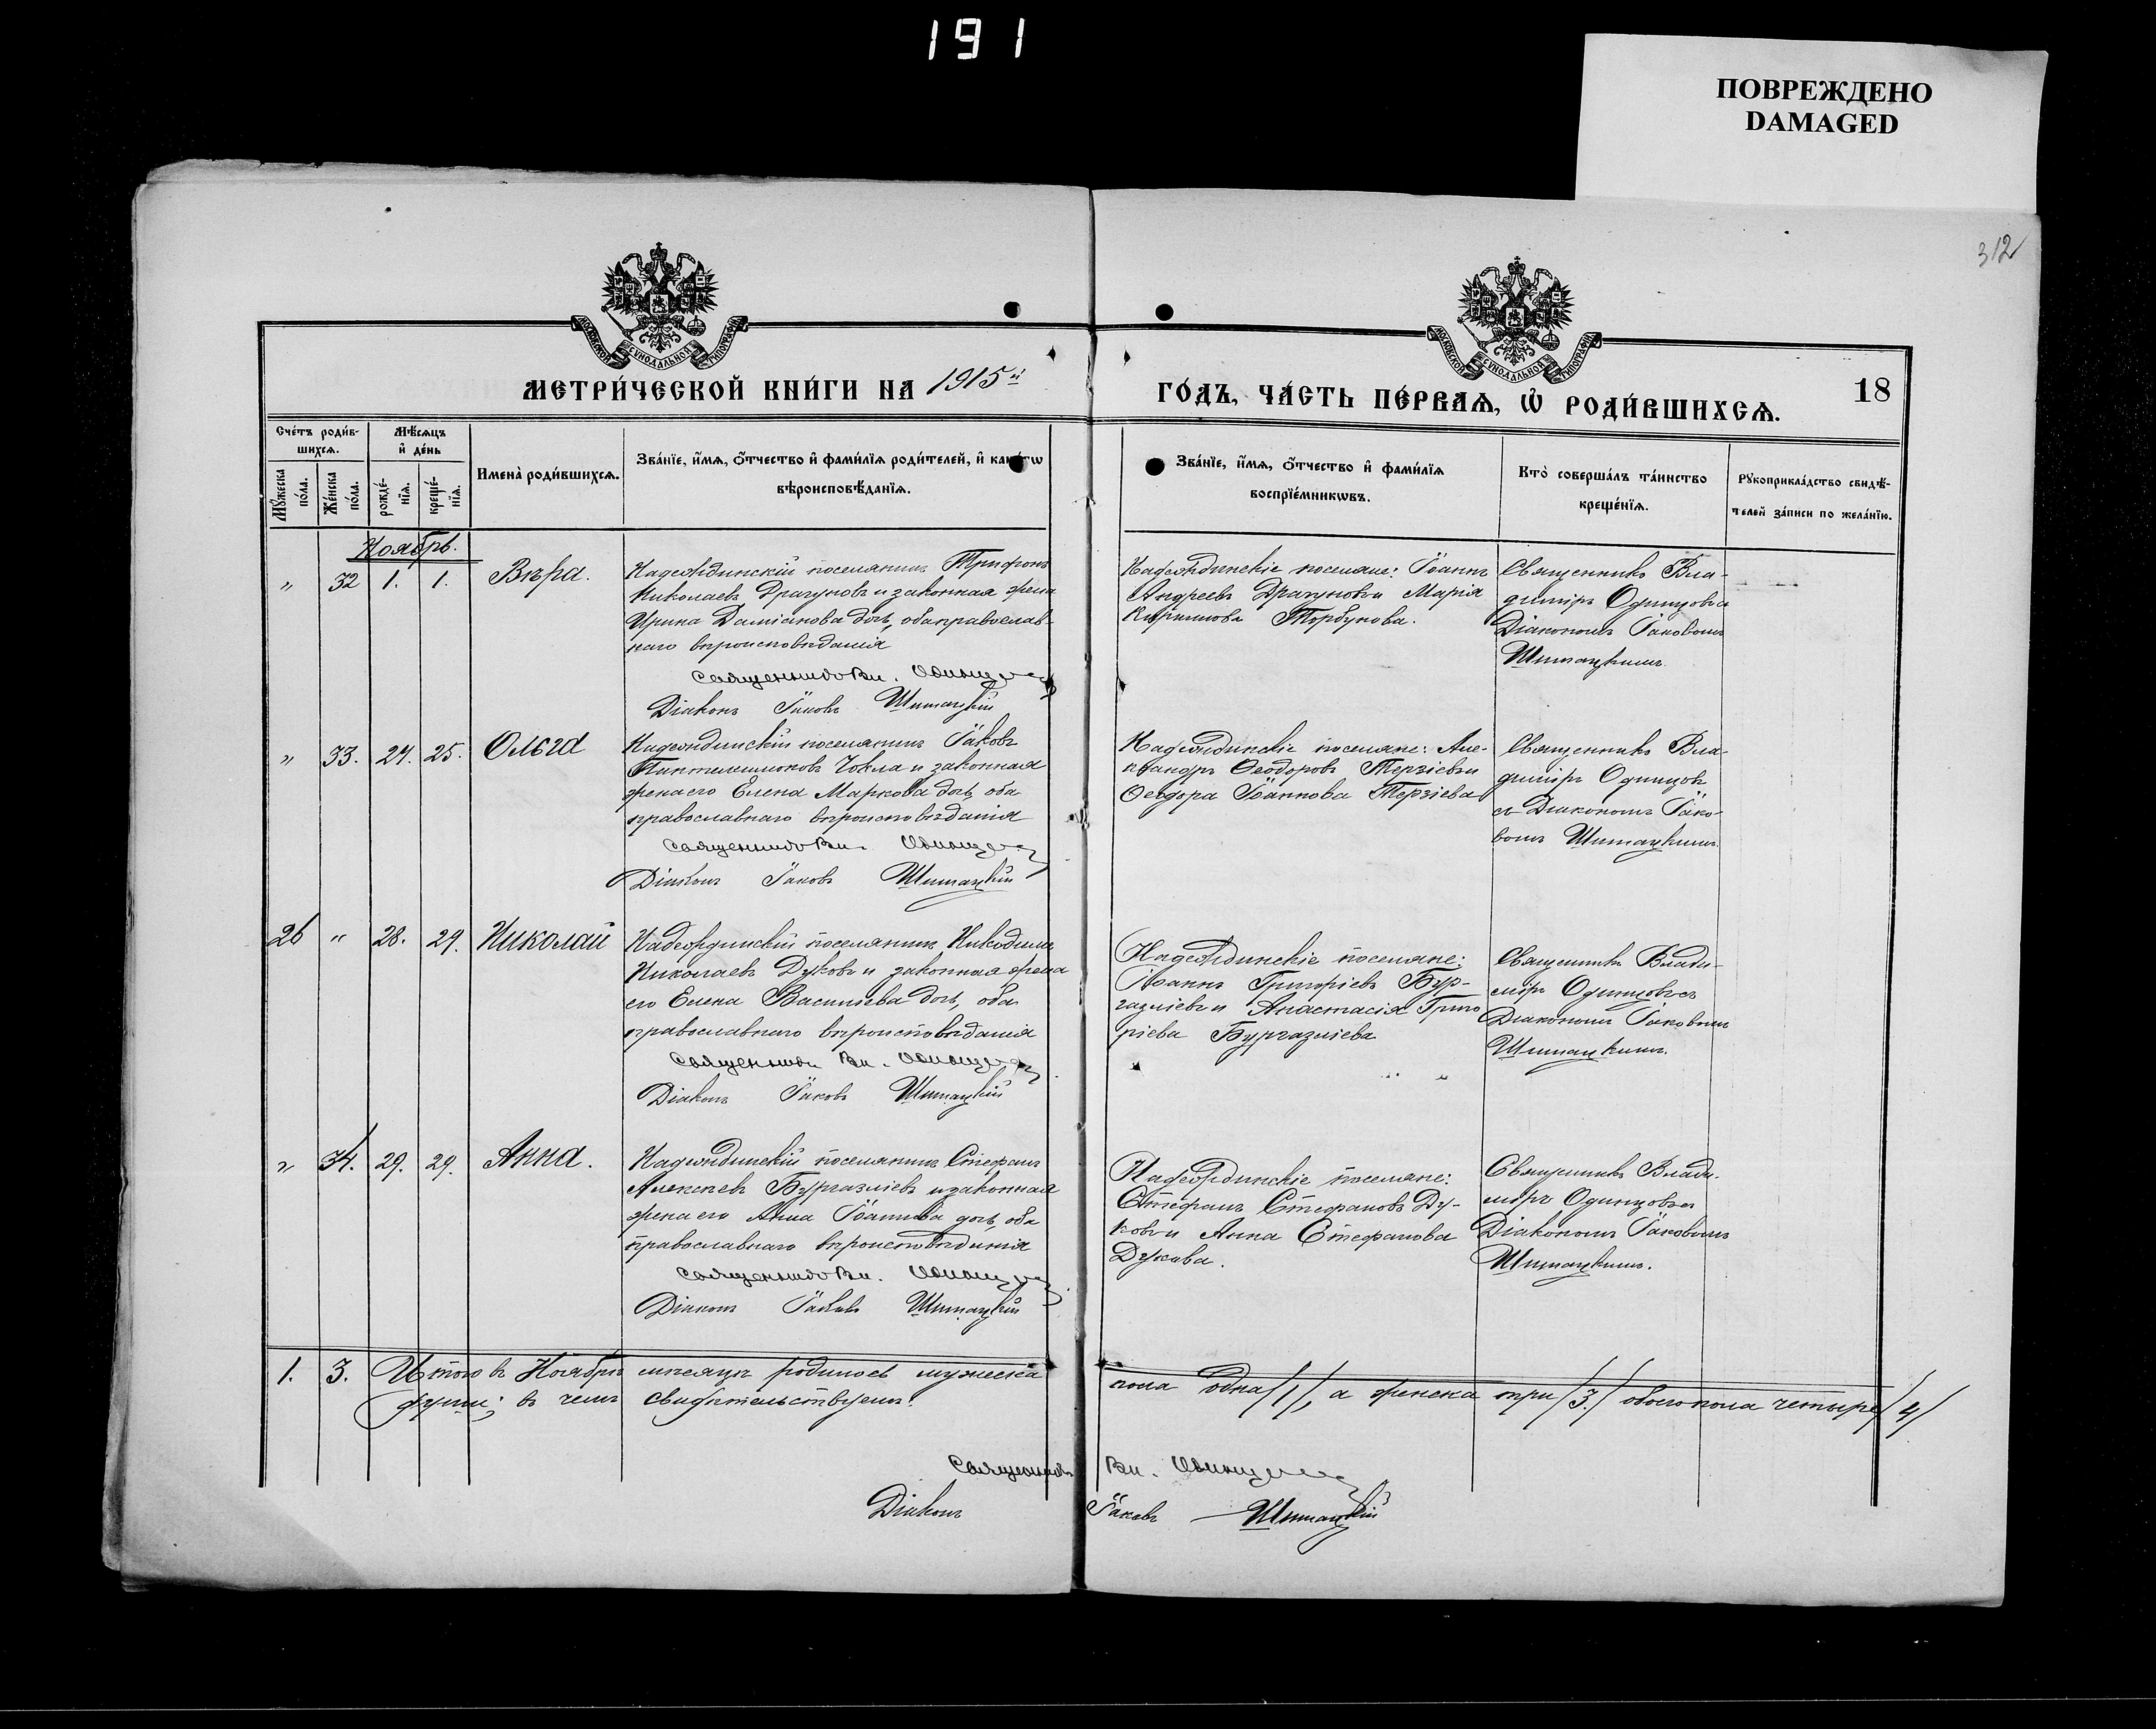 191
ПОВРЕЖДЕНО
DAMAGED
312
МОСКОВСКОЙ СѴНОДАЛЬНОЙ ТИПОГРАФІИ
МОСКОВСКОЙ СѴНОДАЛЬНОЙ ТИПОГРАФІИ
МЕТРИ́ЧЕСКОЙ КНИ́ГИ НА 1915й
ГО́ДЪ, ЧА́СТЬ ПЕ́РВАЯ, Ѽ РОДИ́ВШИХСЯ.
18
Сче́тъ роди́в-
шихся.
Мѣ́сяцъ
и҆ де́нь
Мꙋ́жеска по́ла.
Же́нска по́ла.
рожде́-
нїѧ.
креще́-
нїѧ.
Имена̀ роди́вшихсѧ.
Зва́нїе, и҆́мѧ, ѻ҆́тчество и҆ фами́лїѧ роди́телей, и҆ како́гѡ
вѣроисповѣ́данїѧ.
Зва́нїе, и҆́мѧ, ѻ҆́тчество и҆ фами́лїѧ
воспрїе́мникѡвъ.
Кто̀ соверша́лъ та́инство
креще́нїѧ.
Рꙋкоприкла́дство свидѣ́-
телей за́писи по жела́нїю.
Ноябрь.
„ 32 1. 1. Вѣра.
Надеждинскій поселянинъ Трифонъ
Николаевъ Драгуновъ и законная жена
Ирина Даміанова дочь, оба православ-
наго вѣроисповѣданія
Священникъ Вл. Одинцовъ
Діаконъ Іаковъ Шимацкій
Надеждинскіе поселяне: Іоаннъ
Андреевъ Драгуновъ и Марія
Кириллова Торбунова.
Священникъ Вла-
димиръ Одинцовъ съ
Діакономъ Іаковомъ
Шимацкимъ.
„ 33. 24. 25. Ольга
Надеждинскій поселянинъ Іаковъ
Пантелеимоновъ Чокла и законная
жена его Елена Маркова дочь, оба
православнаго вѣроисповѣданія
Священникъ Вл. Одинцовъ
Діаконъ Іаковъ Шимацкій
Надеждинскіе поселяне: Але-
ксандръ Ѳеодоровъ Терзіевъ и
Ѳеодора Іоаннова Терзіева
Священникъ Вла-
димиръ Одинцовъ
съ Діакономъ Іако-
вомъ Шимацкимъ.
26 „ 28. 29. Николай
Надеждинскій поселянинъ Никодимъ
Николаевъ Дуковъ и законная жена
его Елена Васильева дочь, оба
православнаго вѣроисповѣданія
Священникъ Вл. Одинцовъ
Діаконъ Іаковъ Шимацкій
Надеждинскіе поселяне:
Іоаннъ Григоріевъ Бур-
газліевъ и Анастасія Григо
ріева Бургазліева
Священникъ Влади-
миръ Одинцовъ съ
Діакономъ Іаковомъ
Шимацкимъ.
„ 34. 29. 29. Анна.
Надеждинскій поселянинъ Стефанъ
Алексѣевъ Бургазліевъ и законная
жена его Анна Іоаннова дочь, оба
православнаго вѣроисповѣданія
Священникъ Вл. Одинцовъ
Діаконъ Іаковъ Шимацкій
Надеждинскіе поселяне:
Стефанъ Стефановъ Ду-
ковъ и Анна Стефанова
Дукова.
Священникъ Влади-
миръ Одинцовъ съ
Діакономъ Іаковомъ
Шимацкимъ.
1. 3. Итого въ Ноябрѣ мѣсяцѣ родилось мужеска пола одна /1/, а женска три /3./ обоего пола четыре /4/
души; въ чемъ свидѣтельствуемъ:
Священникъ Вл. Одинцовъ
Діаконъ Іаковъ Шимацкій